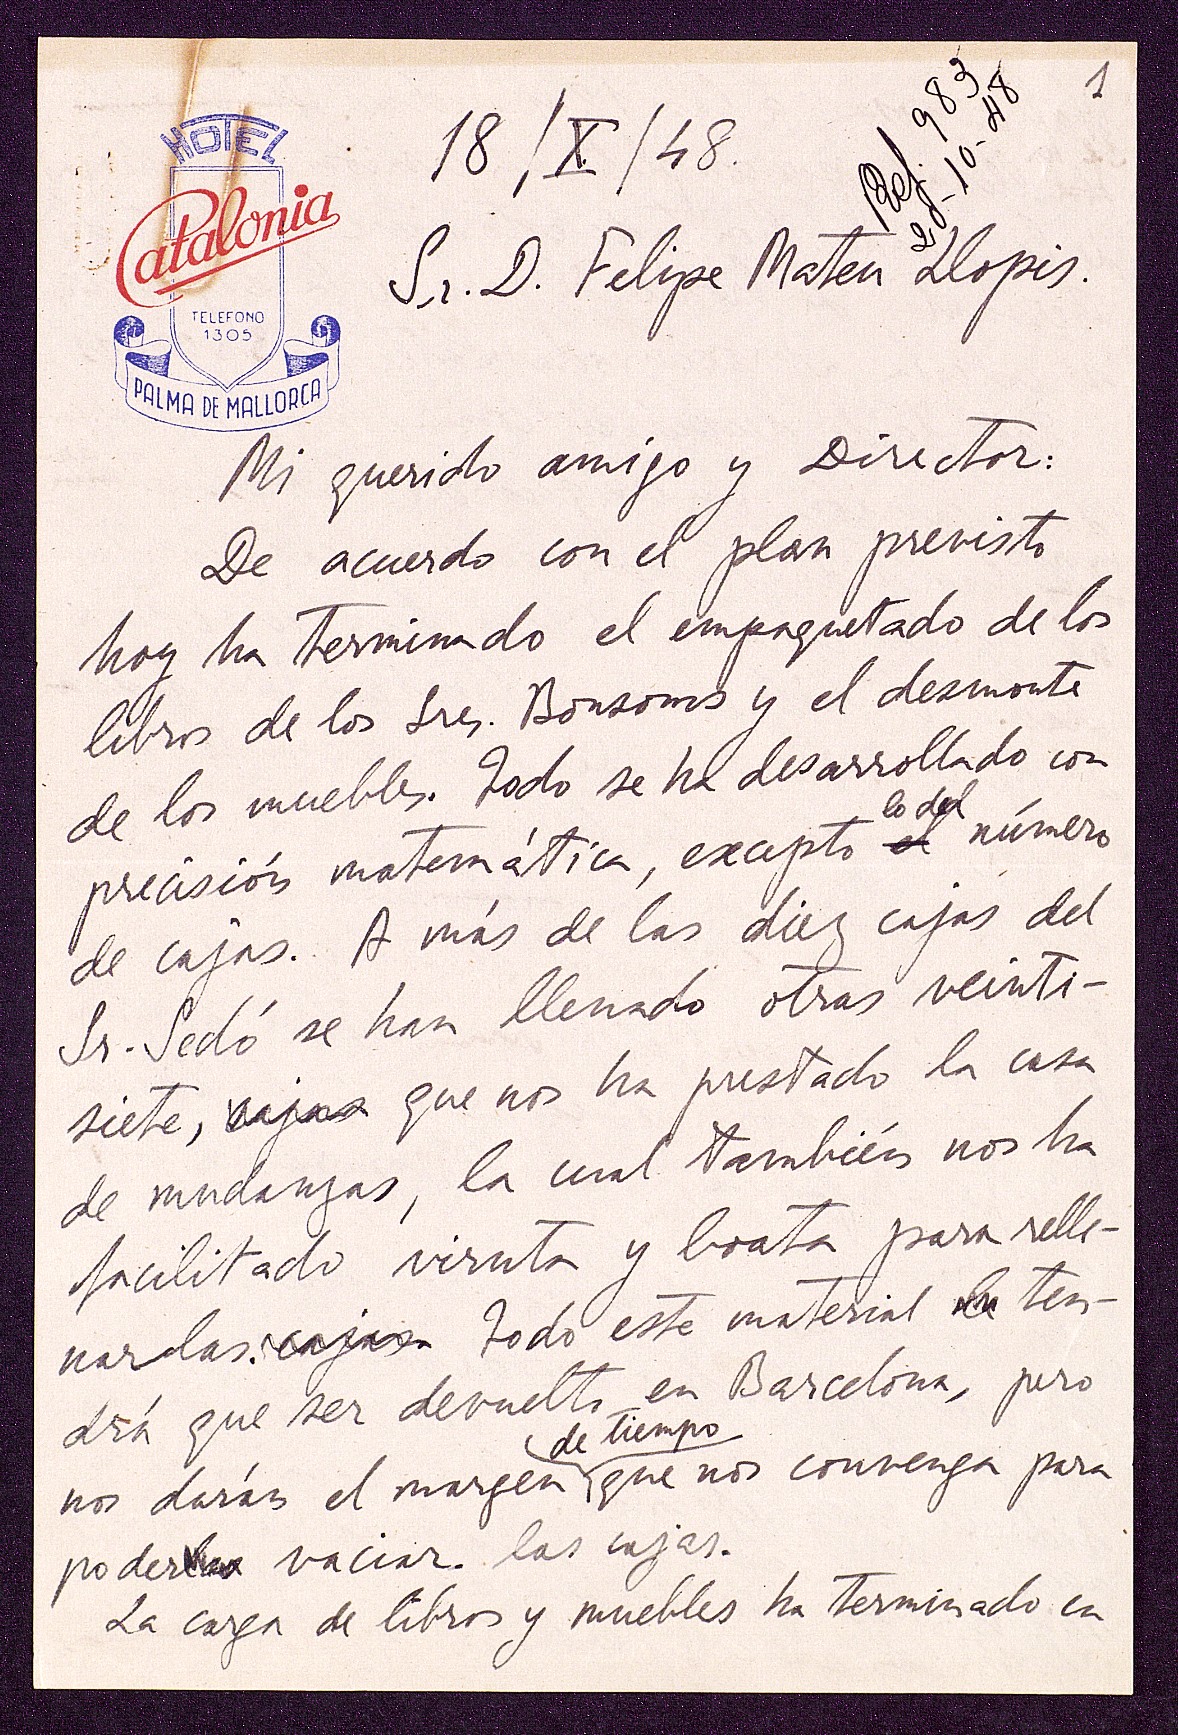 1
Ref. 983
2-10-48
HOTEL
Catalonia
TELEFONO
1305
PALMA DE MALLORCA
18/X/48.
Sr. D. Felipe Mateu Llopis.
Mi querido amigo y Director:
De acuerdo con el plan previsto
hoy ha terminado el empaquetado de los
libros de los Sres. Bonsoms y el desmonte
de los muebles. Todo se ha desarrollado con
precisión matemática, excepto el lo del número
de cajas. A más de las diez cajas del
Sr. Sedó se han llenado otras veinti-
siete, cajas que nos ha prestado la casa
de mudanzas, la cual también nos ha
facilitado viruta y boata para relle-
narlas. cajas Todo este material ten-
drá que ser devuelto en Barcelona, pero
nos darán el margen de tiempo que nos convenga para
poder vaciar. las cajas.
La carga de libros y muebles ha terminado en